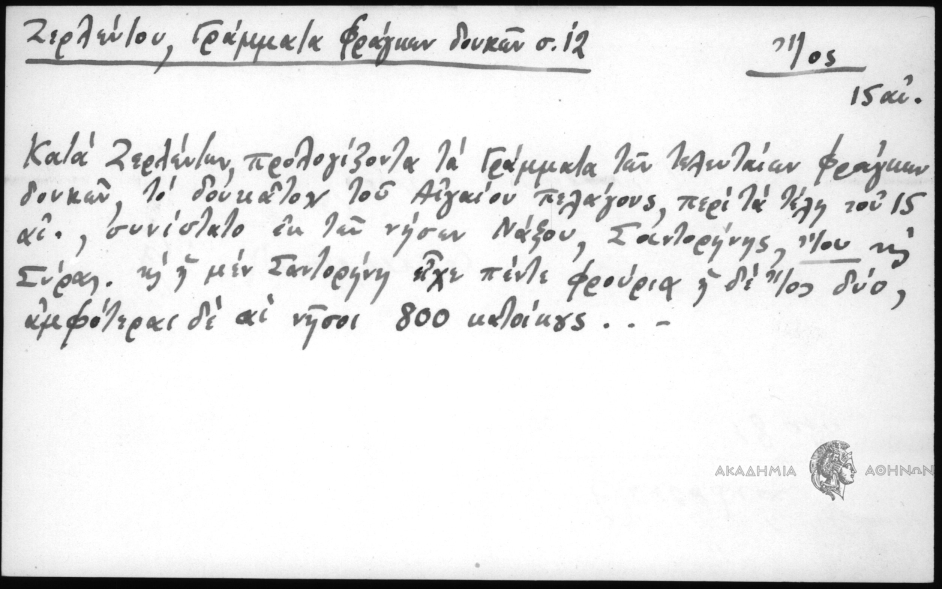 Ζερλέντου, Γράμματα Φράγκων δουκῶν σ.12
Ἴος
15 αἰ.
Κατά Ζερλέντην, προλογίζοντα τά Γράμματα τῶν τελευταίων Φράγκων
δουκῶν, τό δουκᾶτον τοῦ Αἰγαίου πελάγους, περί τά τέλη τοῦ 15
αἰ., συνίστατο ἐκ τῶν νήσων Νάξου, Σαντορήνης, Ἴου κ̀
Σύρας. κ̀ ἡ μέν Σαντορήνη εἶχε πέντε φρούρια ἡ δέ Ἴος δύο,
ἀμφότεραι δέ αἱ νῆσοι 800 κατοίκους . . –
ΑΚΑΔΗΜΙΑ ΑΘΗΝΩΝ